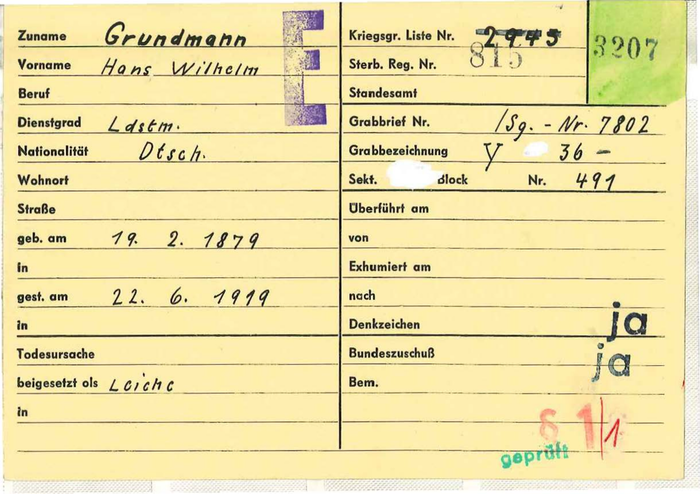 Zuname Grundmann
Vorname Hans Wilhelm
Beruf
Dienstgrad Ldstm.
Nationalität Dtsch.
Wohnort
Straße
geb. am 19. 2. 1879
in
gest. am 22. 6. 1919
in
Todesursache
beigesetzt als Leiche
in
E
Kriegsgr. Liste Nr. 2945
815
3207
Sterb. Reg. Nr.
Standesamt
Grabbrief Nr. /Sg. - Nr. 7802
Grabbezeichnung Y 36 -
Sekt. Block Nr. 491
Überführt am
von
Exhumiert am
nach
Denkzeichen ja
Bundeszuschuß ja
Bem.
§ 1/1
geprüft